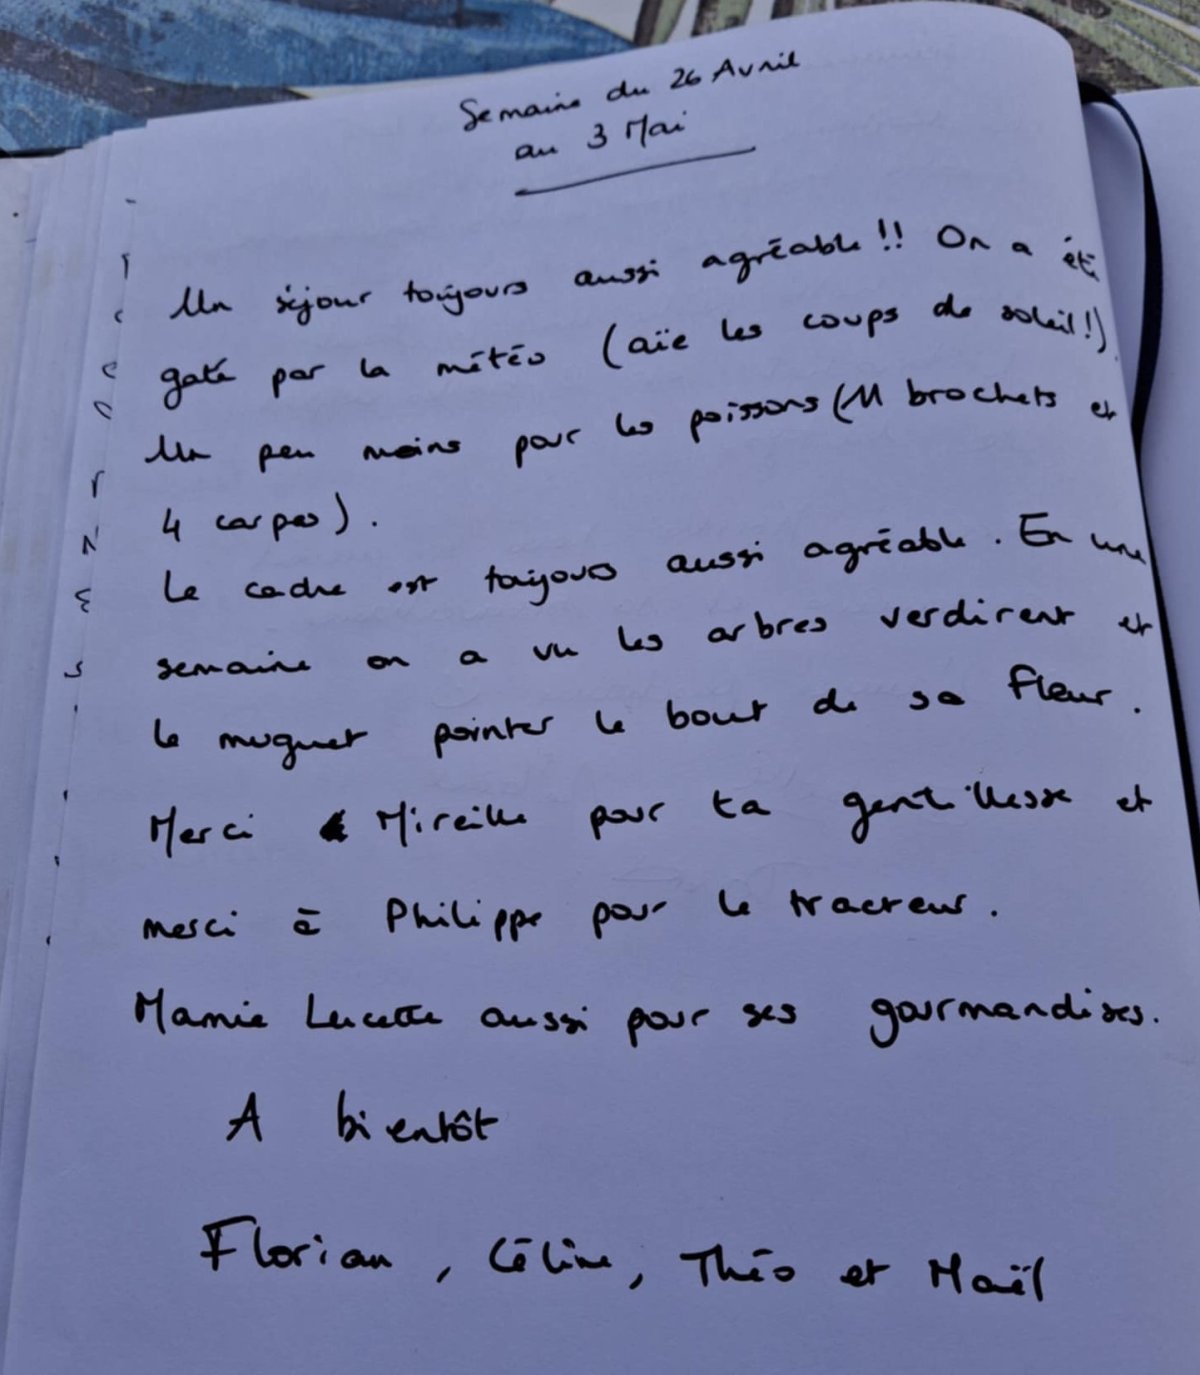 Semaine du 26 Avril
au 3 Mai
Un séjour toujours aussi agréable!! On a été
gaté par la météo (aïe les coups de soleil!)
Un peu moins pour les poissons (11 brochets et
4 carpes).
Le cadre est toujours aussi agréable. En une
semaine on a vu les arbres verdirent et
le muguet pointer le bout de sa fleur.
Merci Mireille pour ta gentillesse et
merci à Philippe pour le tracteur.
Mamie Lucette aussi pour ses gourmandises.
A bientôt
Florian, Céline, Théo et Maël